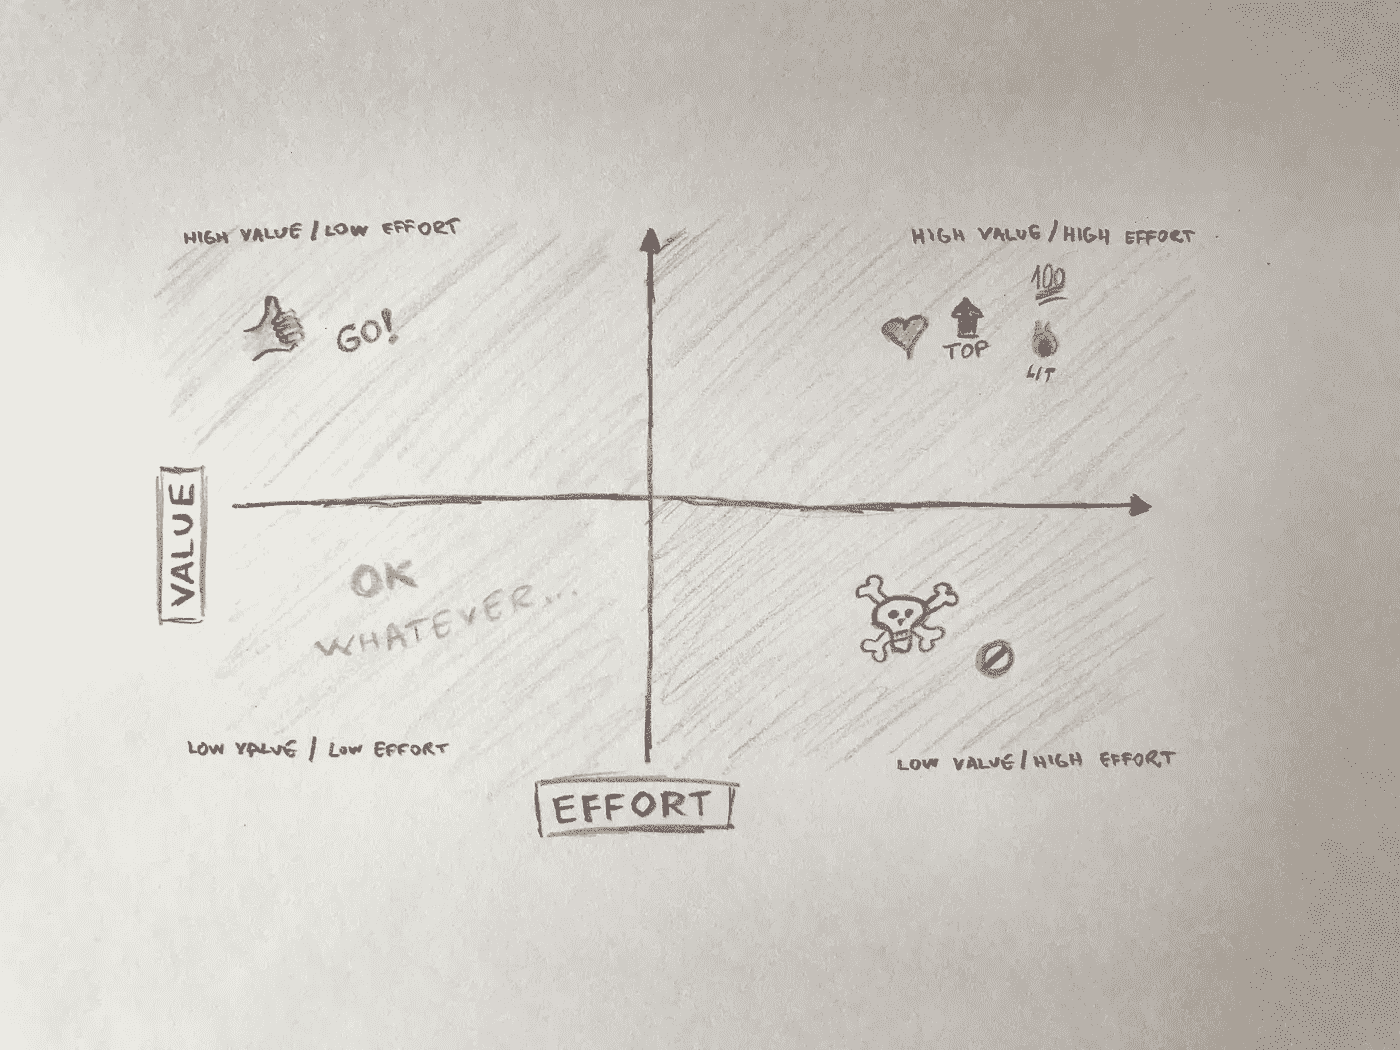 HIGH VALUE / LOW EFFORT
GO!
HIGH VALUE / HIGH EFFORT
100
TOP
LIT
VALUE
OK
WHATEVER...
LOW VALUE / LOW EFFORT
LOW VALUE / HIGH EFFORT
EFFORT